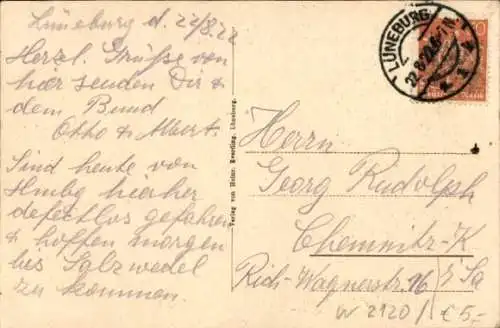 Lüneburg d. 22/8.22
Herzl. Grüße von
hier senden Dir &
dem Bund
Otto & Albert.
Sind heute von
Hmbg hierher
defectlos gefahren
& hoffen morgen
bis Salzwedel
zu kommen.
Verlag von Heinr. Everding, Lüneburg.
LÜNEBURG
22.8.22
Herrn
Georg Rudolph
Chemnitz-K
i/Sa
Rich-Wagnerstr. 16
W 2120/ € 5,-